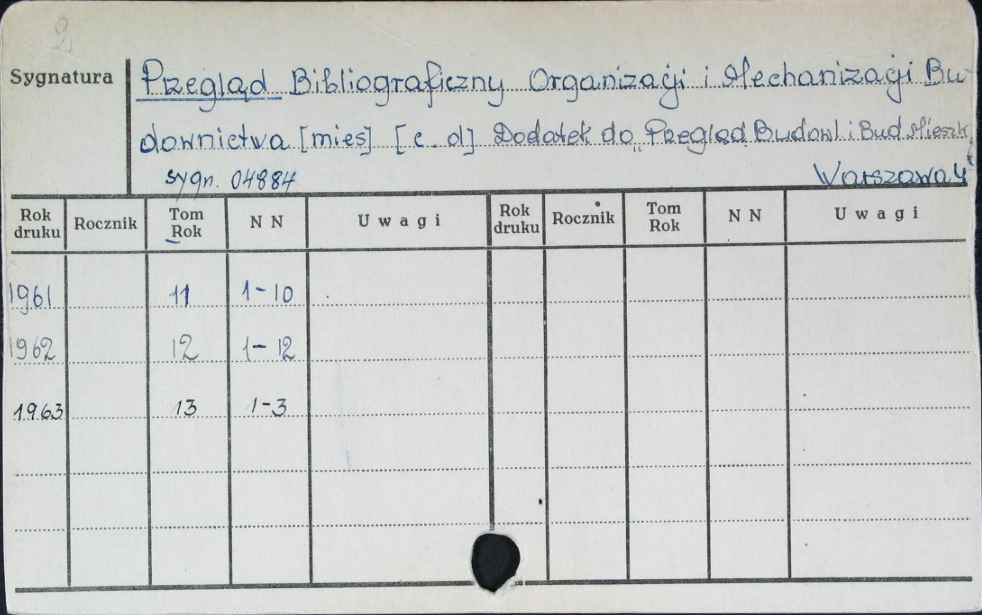 2
Sygnatura
Przegląd Bibliograficzny Organizacji i Mechanizacji Bu-
downictwa [mies] [c. d] Dodatek do „Przegląd Budowl i Bud Mieszk"
sygn. 04884 Warszawa
Rok druku Rocznik Tom Rok N N Uwagi Rok druku Rocznik Tom Rok N N Uwagi
1961 11 1-10
1962 12 1-12
1963 13 1-3